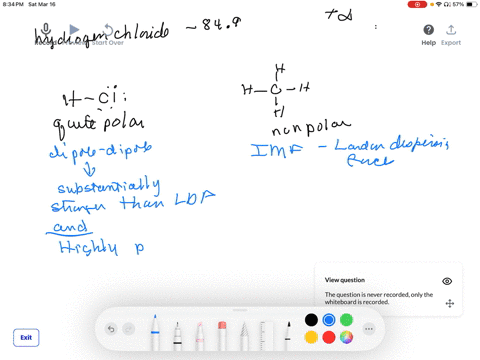 8:34 PM Sat Mar 16
57%
hydrogen chloride ~ 84.9
+δ
Record
Start Over
Help
Export
H - Cl
quite polar
dipole-dipole
substantially
stronger than LDF
and
Highly p
H
H - C - H
H
nonpolar
IMF - London dispersion
force
View question
The question is never recorded, only the
whiteboard is recorded.
Exit